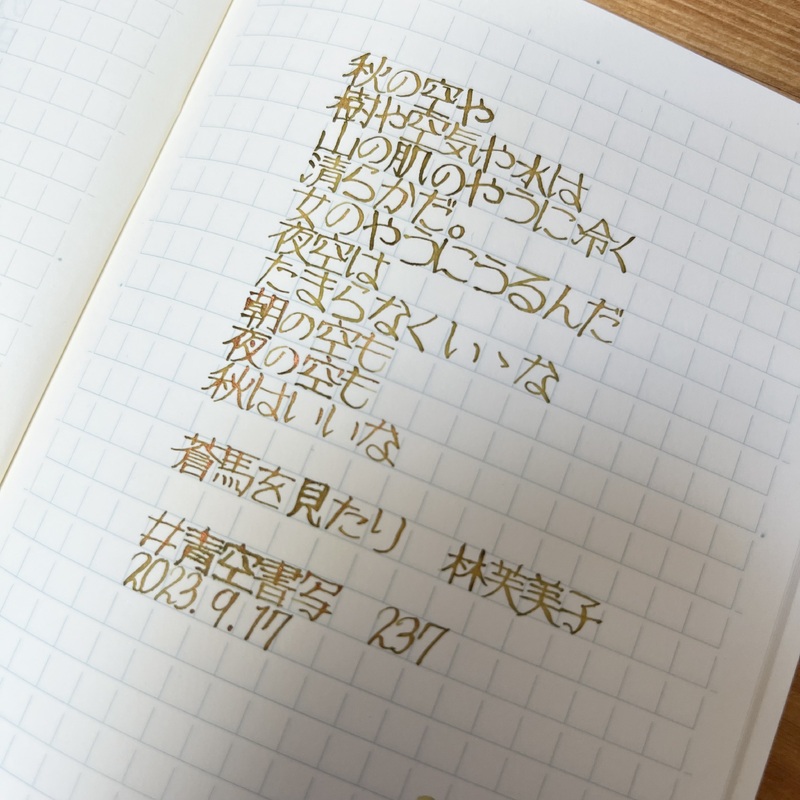 秋の空や
樹や空気や水は
山の肌のやうに冷く
清らかだ。
女のやうにうるんだ
夜空は
たまらなくいゝな
朝の空も
夜の空も
秋はいいな
蒼馬を見たり 林芙美子
#青空書写 237
2023.9.17